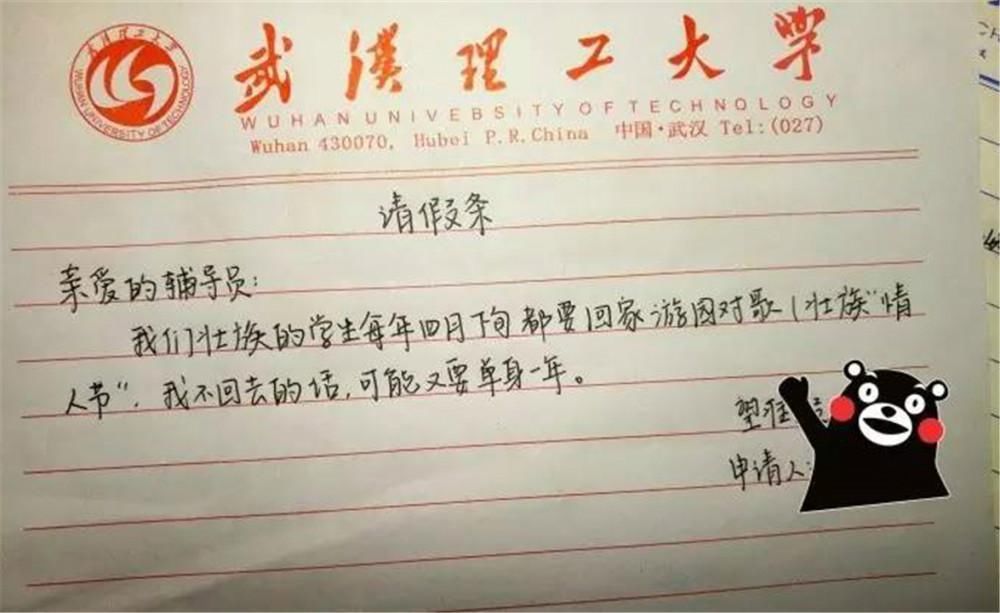 武汉理工大学
WUHAN UNIVERSITY OF TECHNOLOGY
武漢理工大學
WUHAN UNIVEBSITY OF TECHNOLOGY
Wuhan 430070, Hubei P.R.China 中国·武汉 Tel:(027)
请假条
亲爱的辅导员：
我们壮族的学生每年四月下旬都要回家游园对歌（壮族“情
人节”，我不回去的话，可能又要单身一年。
望准
申请人：